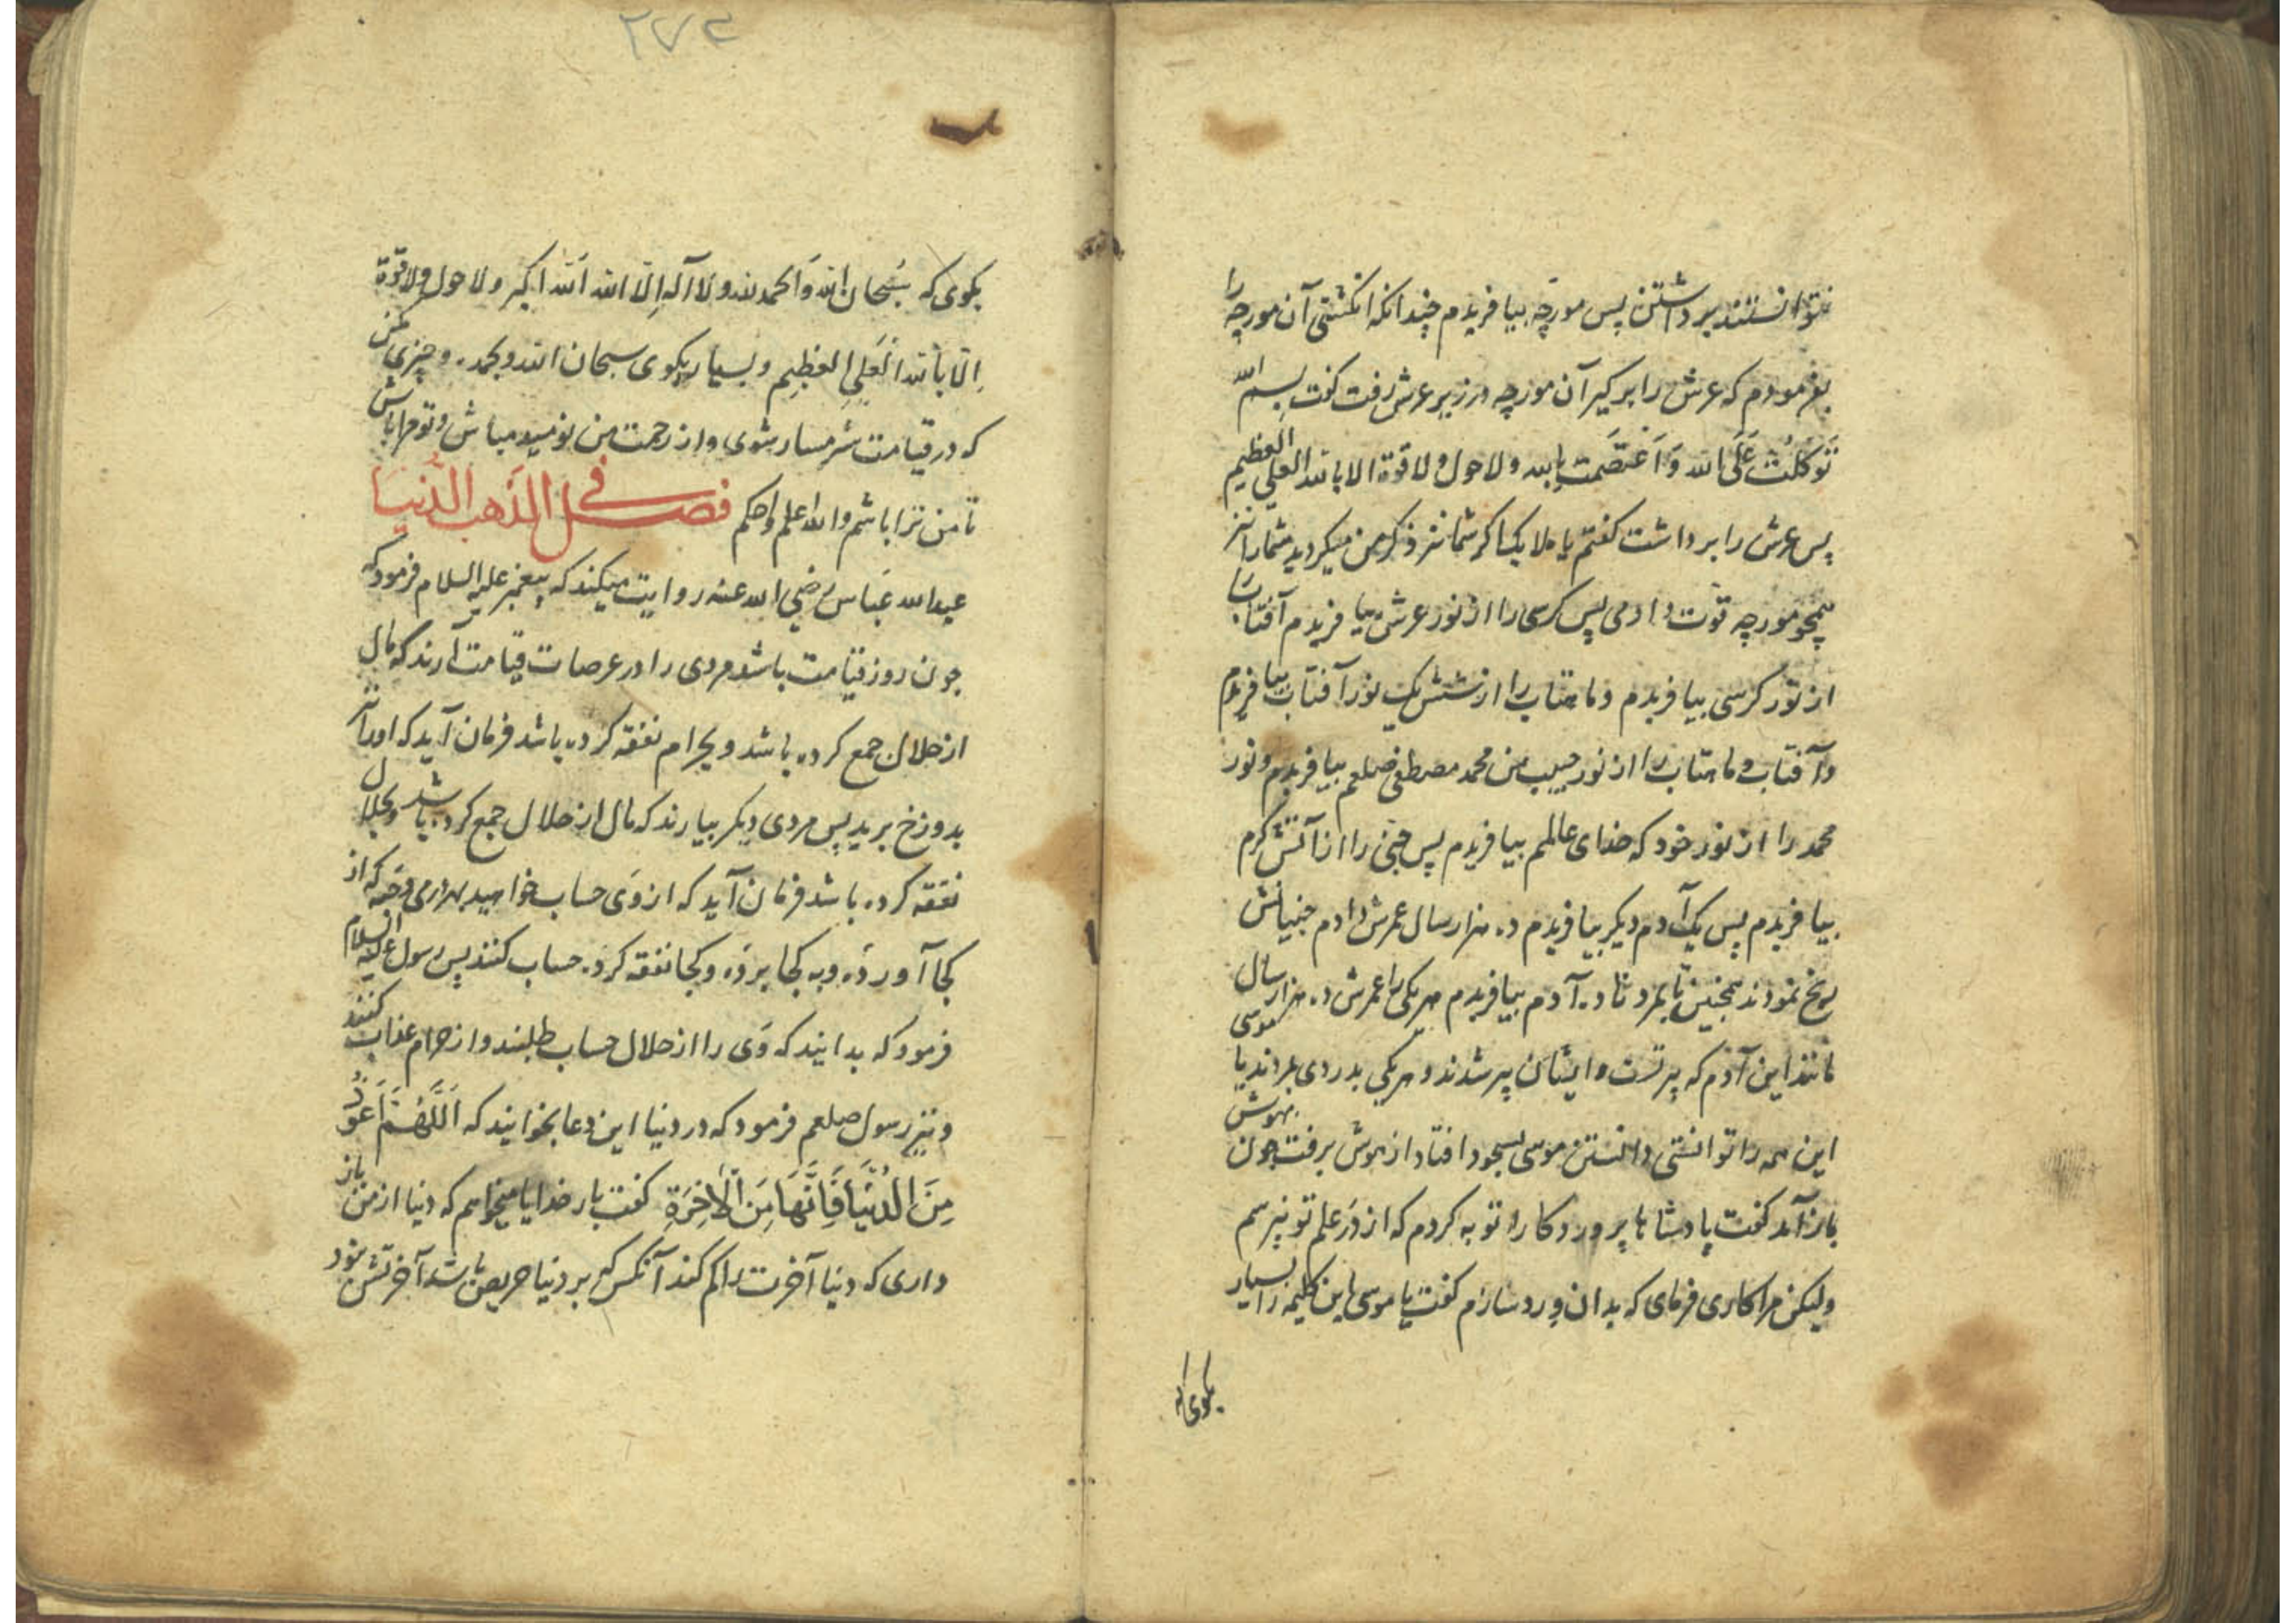 نتوانستند برداشتن پس مورچه بیافریدم چندانکه انکشتی آن مورچه را
بفرمودم که عرش را برکیر آن مورچه در زیر عرش رفت کفت بسم الله
تَوَکَلْتُ عَلَی الله وَاَعْتَصَمت بالله ولا حول ولا قوة الا بالله العلی العظیم
پس عرش را برداشت کفتم یا ملایکها کر شما نیز ذکر من میکردید شما را نیز
همچو مورچه قوّت دادمی پس کرسی را از نور عرش بیافریدم آفتاب را
از نور کرسی بیافریدم و ماهتاب را از شش یک نور آفتاب بیافریدم
و آفتاب و ماهتاب را از نور حبیب من محمد مصطفی صلعم بیافریدم و نور
محمد را از نور خود که خدای عالمم بیافریدم پس جنی را از آتش کرم
بیافریدم پس یک آدم دیکر بیافریدم ده هزار سال عمرش دادم جنیانش
رنج نمودند همچنین تا بمرد تا ده آدم بیافریدم هریکی را عمرش ده هزار سال
مانند این آدم که پدر تست و ایشان پیر شدند و هریکی بدردی بمردند یا موسی
این همه را توانستی دانستن موسی بسجود افتاد از هوش برفت چون بهوش
باز آمد کفت پادشاها پروردکارا توبه کردم که از در علم تو نپرسم
ولیکن مرا کاری فرمای که بدان ورد سازم کفت یا موسی این کلیمه را بسیار
بکوی که
۲۷۴
بکوی که سُبحان الله وَالحمد لله ولا اله اِلّا الله الله اکبر ولا حول ولا قوّة
اِلّا بالله العَلیِ العظیم و بسیار بکوی سبحان الله وبحمده و چیزی مکن
که در قیامت شرمسار شوی و از رحمت من نومید مباش و تو مرا باش
تا من ترا باشم والله اعلم واحکم فصل فی المذهب الدُنیا
عبدالله عَباس رضی الله عنه روایت میکند که پیغمبر علیه السلام فرمود که
چون روز قیامت باشد مردی را در عرصات قیامت آرند که مال
از حلال جمع کرده باشد و بحرام نفقه کرده باشد فرمان آید که او را نیز
بدوزخ برید پس مردی دیکر بیارند که مال از حلال جمع کرده باشد و بحلال
نفقه کرده باشد فرمان آید که از وَی حساب خواهید بهر درمی و حبّه که از
کجا آورده و به کجا برده و کجا نفقه کرده حساب کنند پس رسول علیه السلام
فرمود که بدانید که وَی را از حلال حساب طلبند و از حرام عذاب کنند
و نیز رسول صلعم فرمود که در دنیا این دعا بخوانید که اَللَّهُمَّ اَعوَذُ
مِنَ الدُنْیَا فَاَنَّهَا مِنَ الْاَخِرَةِ کفت بار خدایا میخواهم که دنیا از من باز
داری که دنیا آخرت را کم کند آنکس که بر دنیا حریص باشد آخرتش نبود